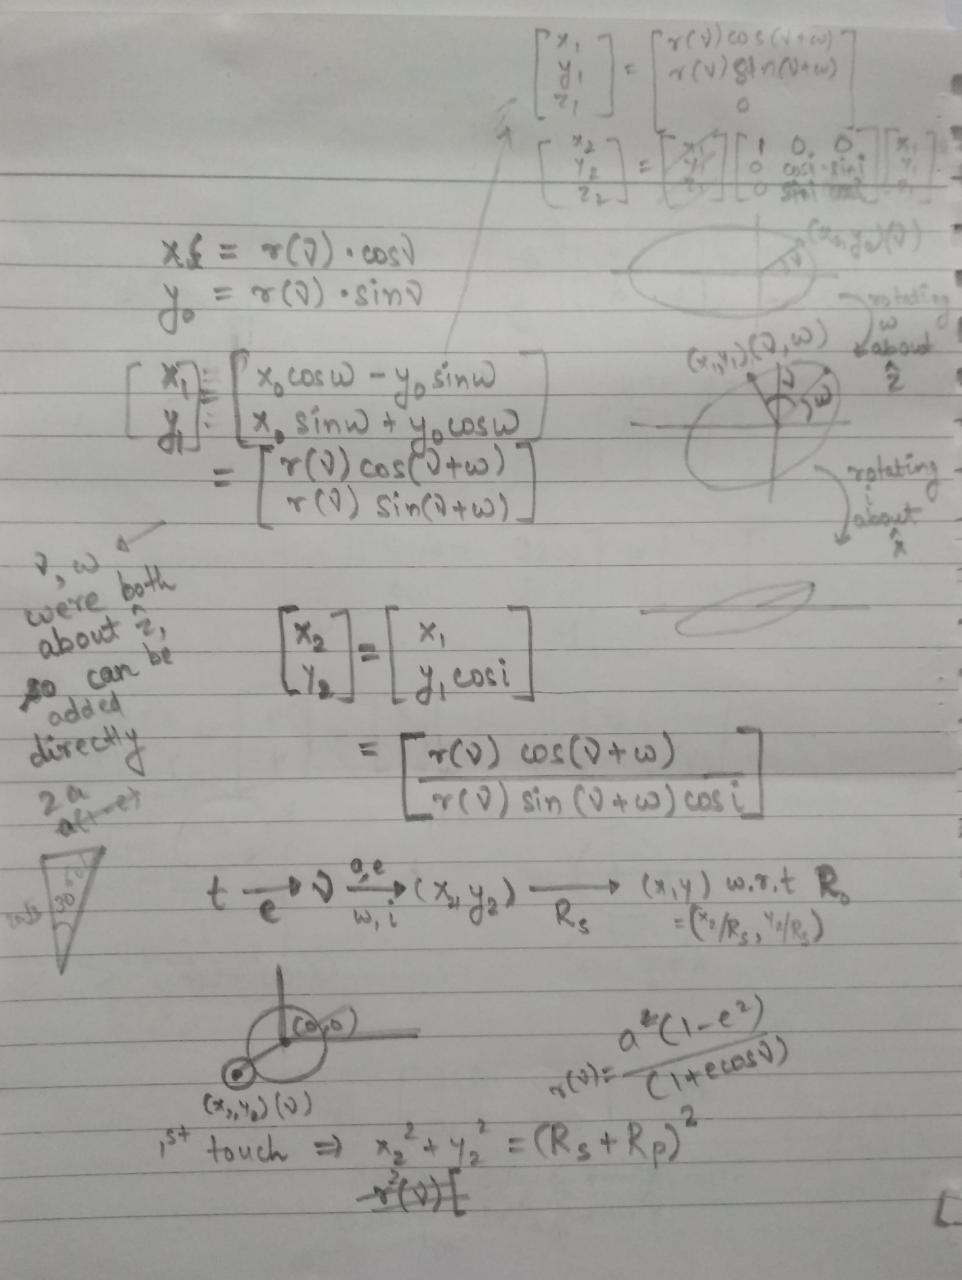 [x₁ y₁ z₁] = [r(ν) cos(ν+ω) r(ν) sin(ν+ω) 0]
[x₂ y₂ z₂] = [1 0 0 0 cosi -sini 0 sini cosi] [x₁ y₁ z₁]
x₀ = r(ν) · cosν
y₀ = r(ν) · sinν
(x₀, y₀)(ν)
ν
rotating
ω
about
ẑ
[x₁ y₁] = [x₀ cosω - y₀ sinω
x₀ sinω + y₀ cosω]
= [r(ν) cos(ν+ω)
r(ν) sin(ν+ω)]
(x₁, y₁)(ν, ω)
ν
ω
rotating
i
about
x̂
ν, ω
were both
about ẑ,
so can be
added
directly
[x₂ y₂] = [x₁
y₁ cosi]
= [r(ν) cos(ν+ω)
r(ν) sin(ν+ω) cosi]
2a
a(1-e)
60
30
t →(e) ν →(a,e ω,i) (x₂, y₂) →(Rₛ) (x,y) w.r.t Rₛ
= (x₂/Rₛ, y₂/Rₛ)
(0,0)
r(ν) = a(1-e²) / (1+ecosν)
1st touch ⇒ x₂² + y₂² = (Rₛ + Rₚ)²
r²(ν)[